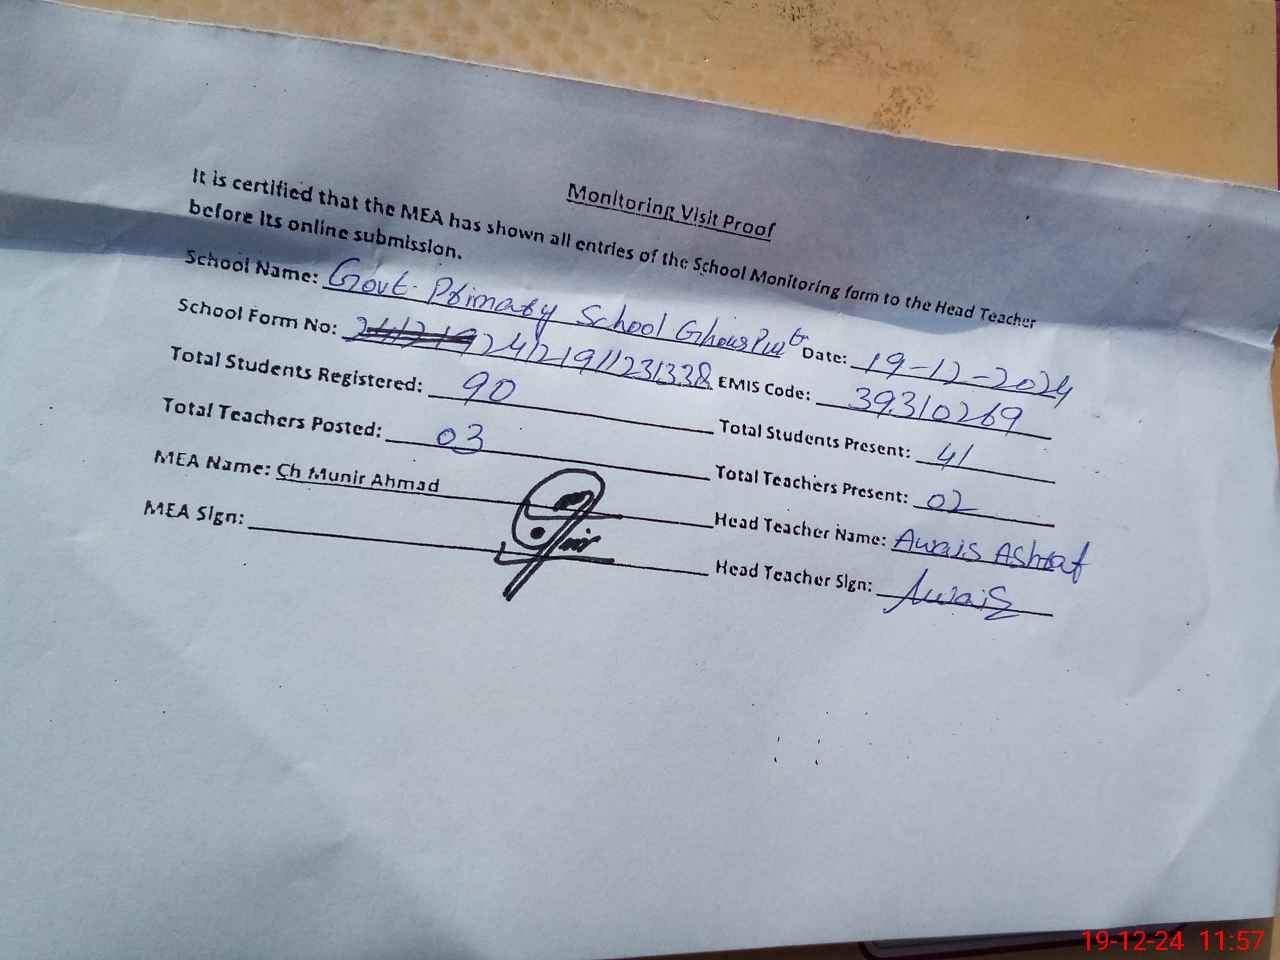 Monitoring Visit Proof
It is certified that the MEA has shown all entries of the School Monitoring form to the Head Teacher
before its online submission.
School Name: Govt. Primary School Ghous Pur Date: 19-12-2024
School Form No: 24121911231338 EMIS Code: 39310269
Total Students Registered: 90 Total Students Present: 41
Total Teachers Posted: 03 Total Teachers Present: 02
MEA Name: Ch Munir Ahmad Head Teacher Name: Awais Ashraf
MEA Sign: Head Teacher Sign: Awais
19-12-24 11:57